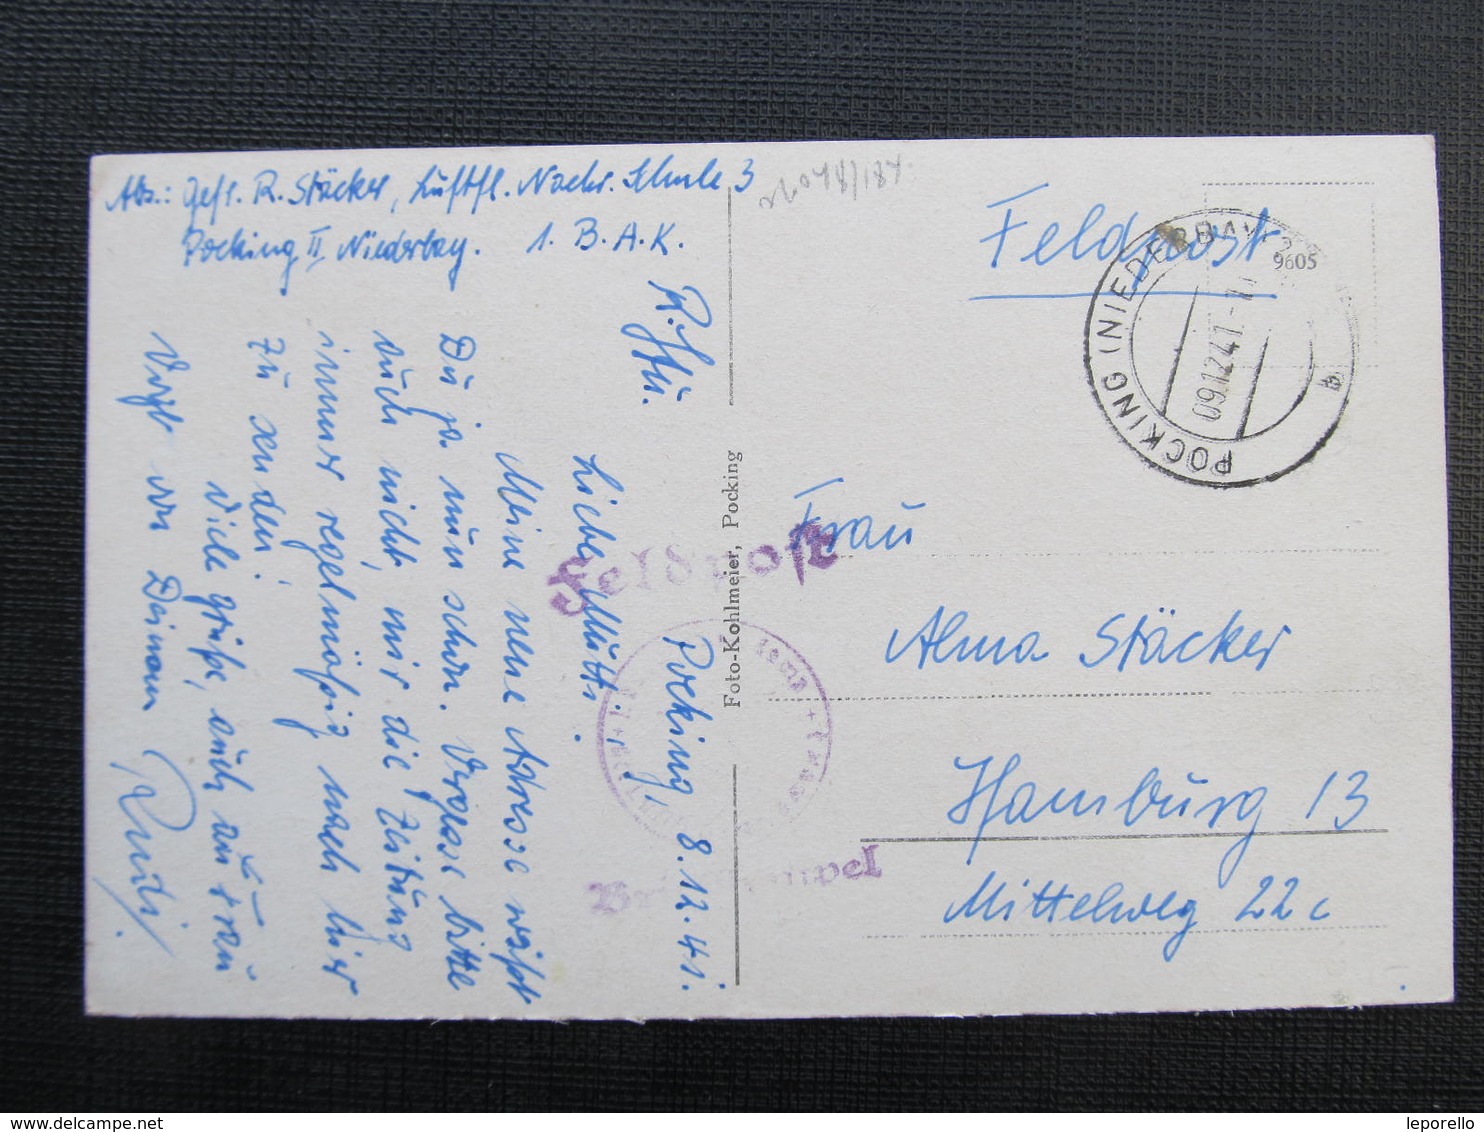 Abs.: Gefr. R. Stäcker, Luftfl. Nachr. Schule 3
Pocking II, Niederbay. 1. B. A. K.
Pocking, 8.12.41.
Liebe Mutti.
Meine neue Adresse weißt
Du ja nun schon. Vergesse bitte
auch nicht, mir die Zeitung
immer regelmäßig nach hier
zu senden!
Viele Grüße, auch an Frau
Voigt von Deinem
Rudi.
Foto-Kohlmeier, Pocking
Feldpost
Feldpost
POCKING (NIEDERBAY)
09.12.41.
b
9605
Frau
Alma Stäcker
Hamburg 13
Mittelweg 22c
leporello